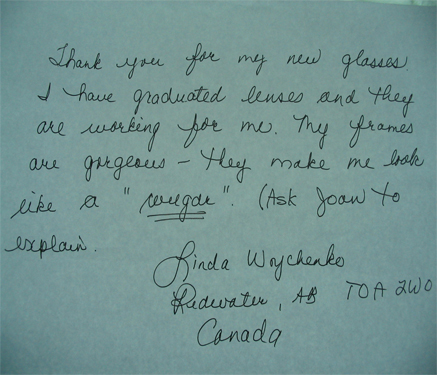 Thank you for my new glasses.
I have graduated lenses and they
are working for me. My frames
are gorgeous – they make me look
like a "cougar". (Ask Joan to
explain.
Linda Woychenko
Redwater, AB T0A 2W0
Canada